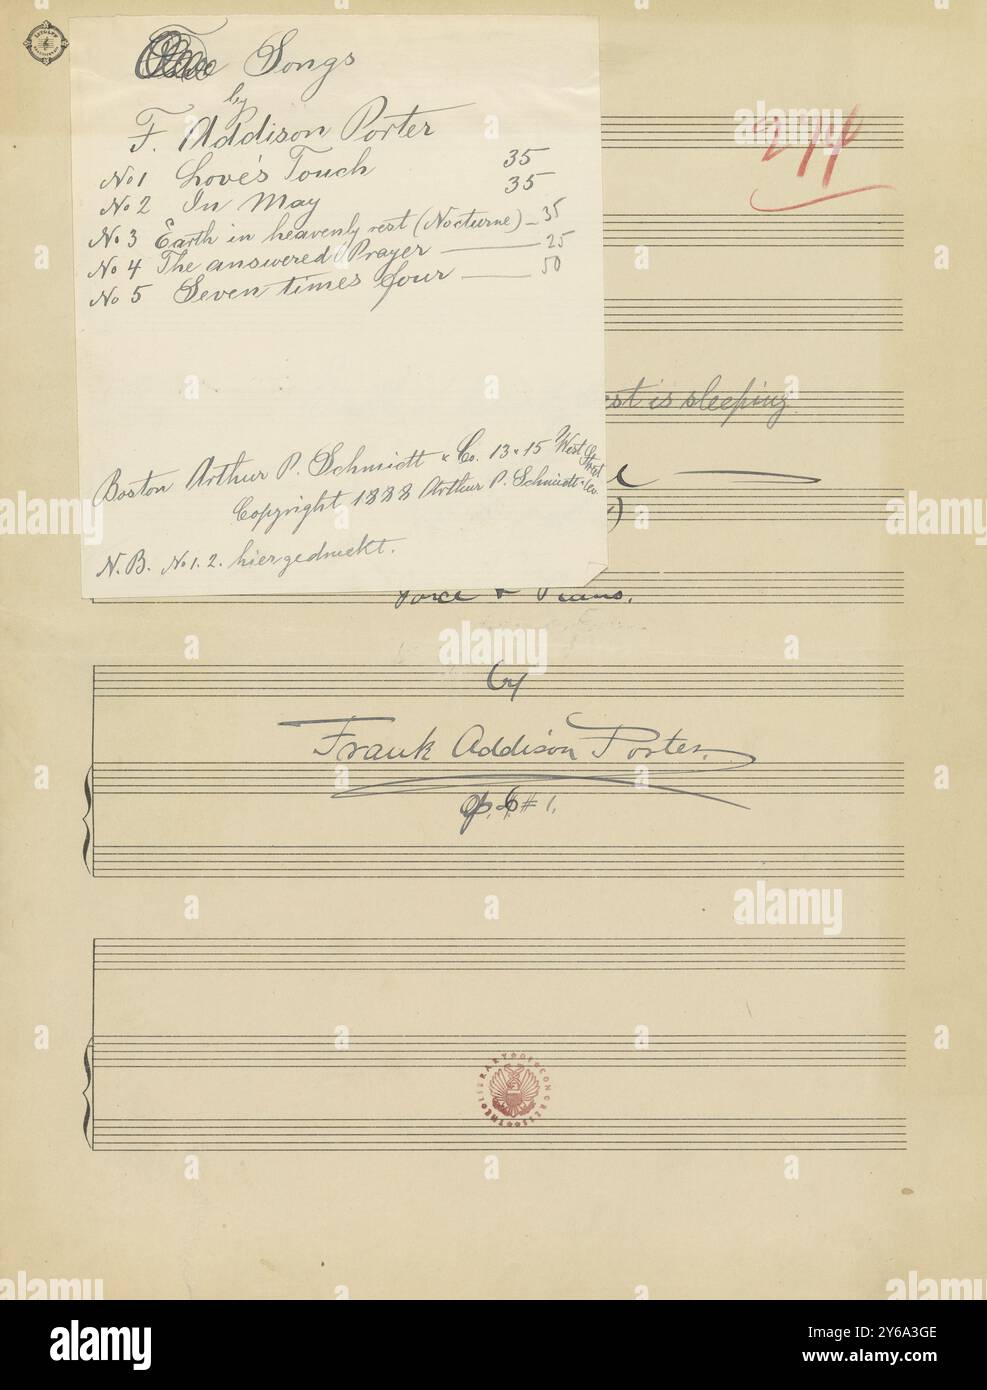 Songs
by
F. Addison Porter
No 1 Love's Touch 35
No 2 In May 35
No 3 Earth in heavenly rest (Nocturne) — 35
No 4 The answered Prayer — 25
No 5 Seven times four — 50
Boston Arthur P. Schmidt & Co. 13 & 15 West Street
Copyright 1888 Arthur P. Schmidt & Co.
N.B. No 1. 2. hier gedruckt.
274
est is sleeping
Voice & Piano.
by
Frank Addison Porter.
op. 6 # 1.
THE LIBRARY OF CONGRESS
alamy
Image ID: 2Y6A3GE
www.alamy.com